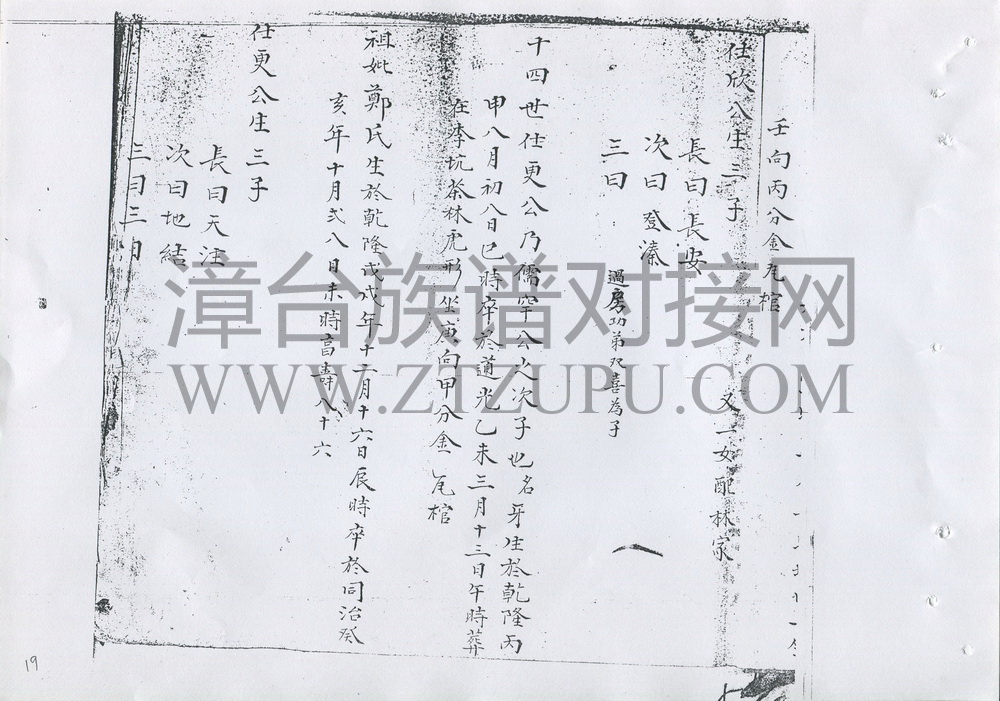 壬向丙分金瓦棺
任欣公生三子 又一女配林家
長曰長安
次曰登溱
三曰 過房功弟双喜為子
十四世任更公乃儒罕公之次子也名牙生於乾隆丙
申八月初八日巳時卒於道光乙未三月十三日午時葬
在李坑茶林虎形坐庚向甲分金瓦棺
祖妣鄭氏生於乾隆戊戌年十二月十六日辰時卒於同治癸
亥年十月弍八日未時高壽八十六
任更公生三子
長曰天注
次曰地結
三曰三
漳台族谱对接网
WWW.ZTZUPU.COM
19